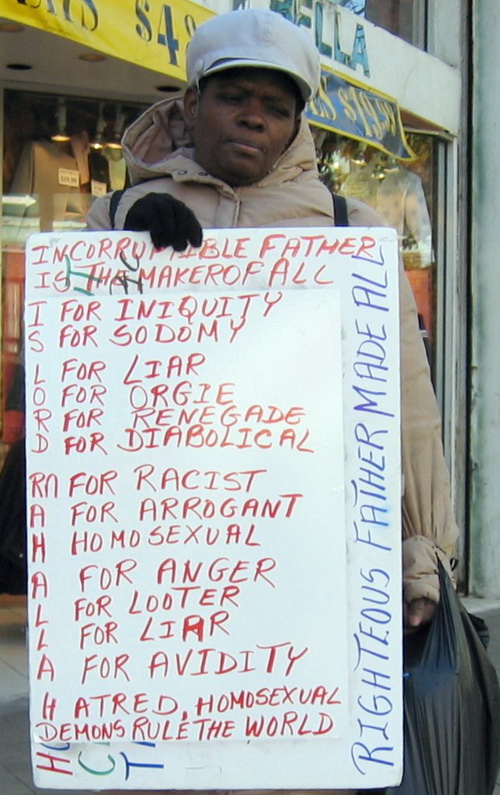 $4
ELLA
$19.99
INCORRUPTIBLE FATHER
IS THA MAKER OF ALL
I FOR INIQUITY
S FOR SODOMY
L FOR LIAR
O FOR ORGIE
R FOR RENEGADE
D FOR DIABOLICAL
RA FOR RACIST
A FOR ARROGANT
H HOMOSEXUAL
A FOR ANGER
L FOR LOOTER
L FOR LIAR
A FOR AVIDITY
HATRED, HOMOSEXUAL
DEMONS RULE THE WORLD
RIGHTEOUS FATHER MADE ALL